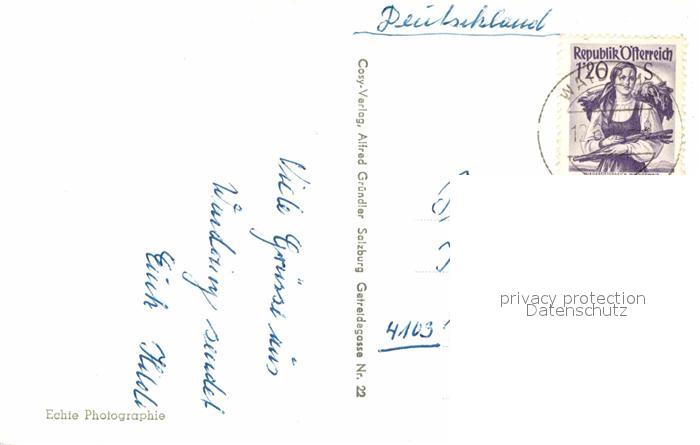 Deutschland
Republik Österreich
1'20 S
Cosy-Verlag, Alfred Gründler Salzburg Getreidegasse Nr. 22
Viele Grüsse aus
sendet
Euch
4103
privacy protection
Datenschutz
Echte Photographie